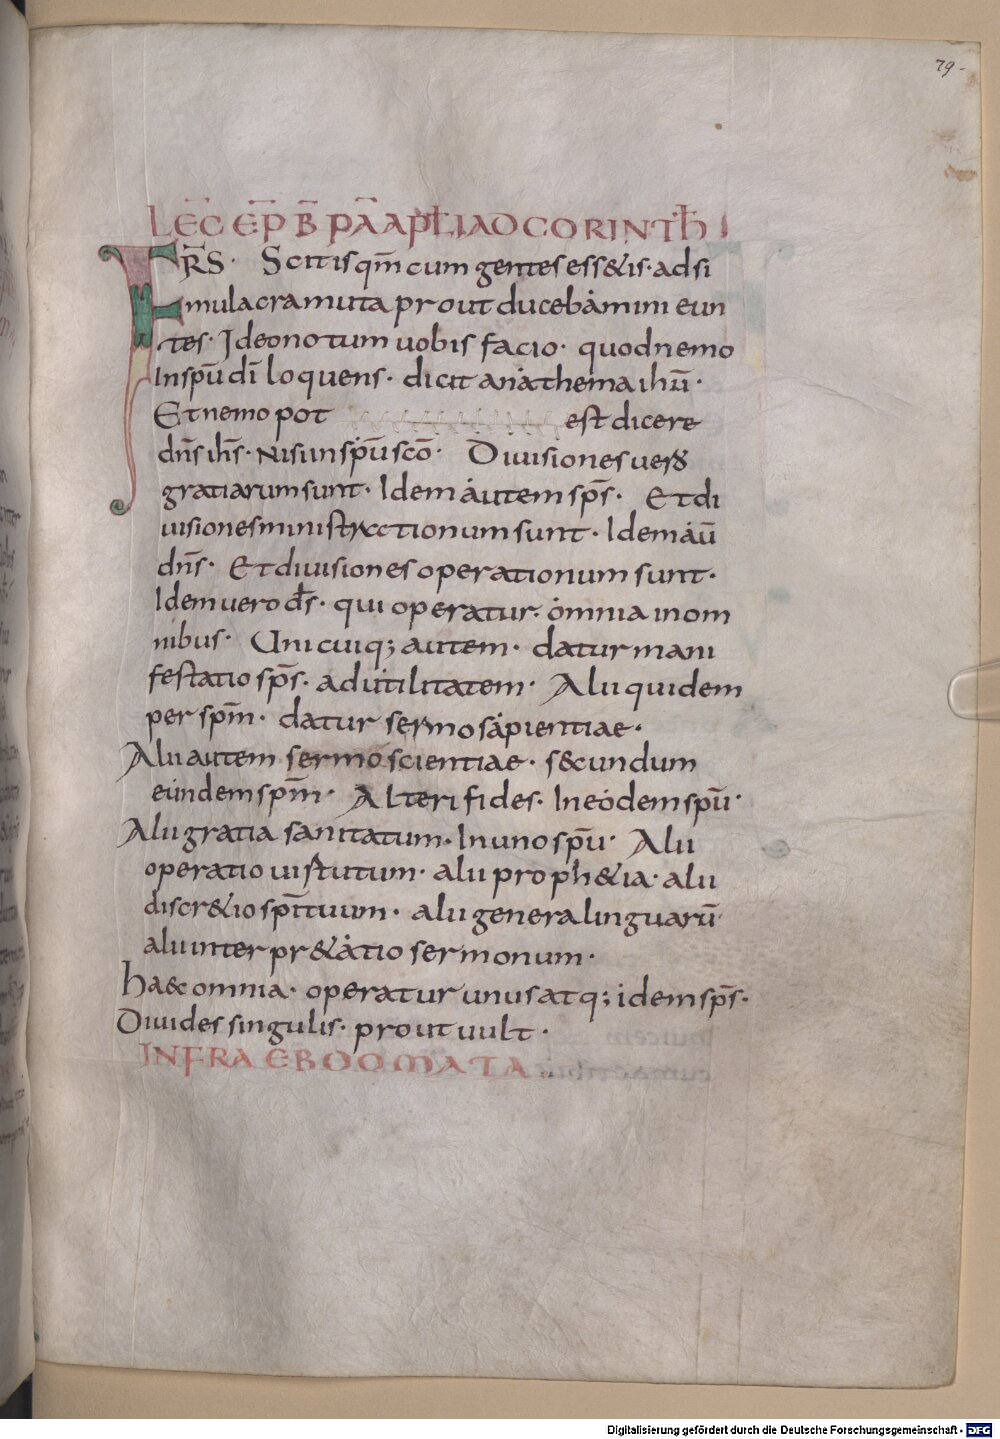 79-
LEC̄ EP̄ B̄ PĀ APŁI AD CORINTH̄I
FR̄S· Scitis qm̄ cum gentes ess&is· ad si
mulacra muta prout ducebamini eun
tes· Ideo notum uobis facio· quod nemo
In sp̄u dī loquens· dicit anathema ih̄u·
Et nemo pot est dicere
dn̄s ih̄s· Nisi in sp̄u scō· Diuisiones uero
gratiarum sunt· Idem autem sp̄s· Et di
uisiones ministrationum sunt· Idem aū
dn̄s· Et diuisiones operationum sunt·
Idem uero d̄s· qui operatur· omnia in om
nibus· Unicuiq; autem· datur mani
festatio sp̄s· ad utilitatem· Alii quidem
per sp̄m· datur sermo sapientiae·
Alii autem sermo scientiae· s&cundum
eundem sp̄m· Alteri fides· In eodem sp̄u·
Alii gratia sanitatum· In uno sp̄u· Alii
operatio uirtutum· alii proph&ia· alii
discr&io sp̄ituum· alii genera linguarū
alii interpr&atio sermonum·
ha&c omnia· operatur unus atq; idem sp̄s·
Diuides singulis· prout uult·
INFRA EBDOMATA
Digitalisierung gefördert durch die Deutsche Forschungsgemeinschaft - DFG